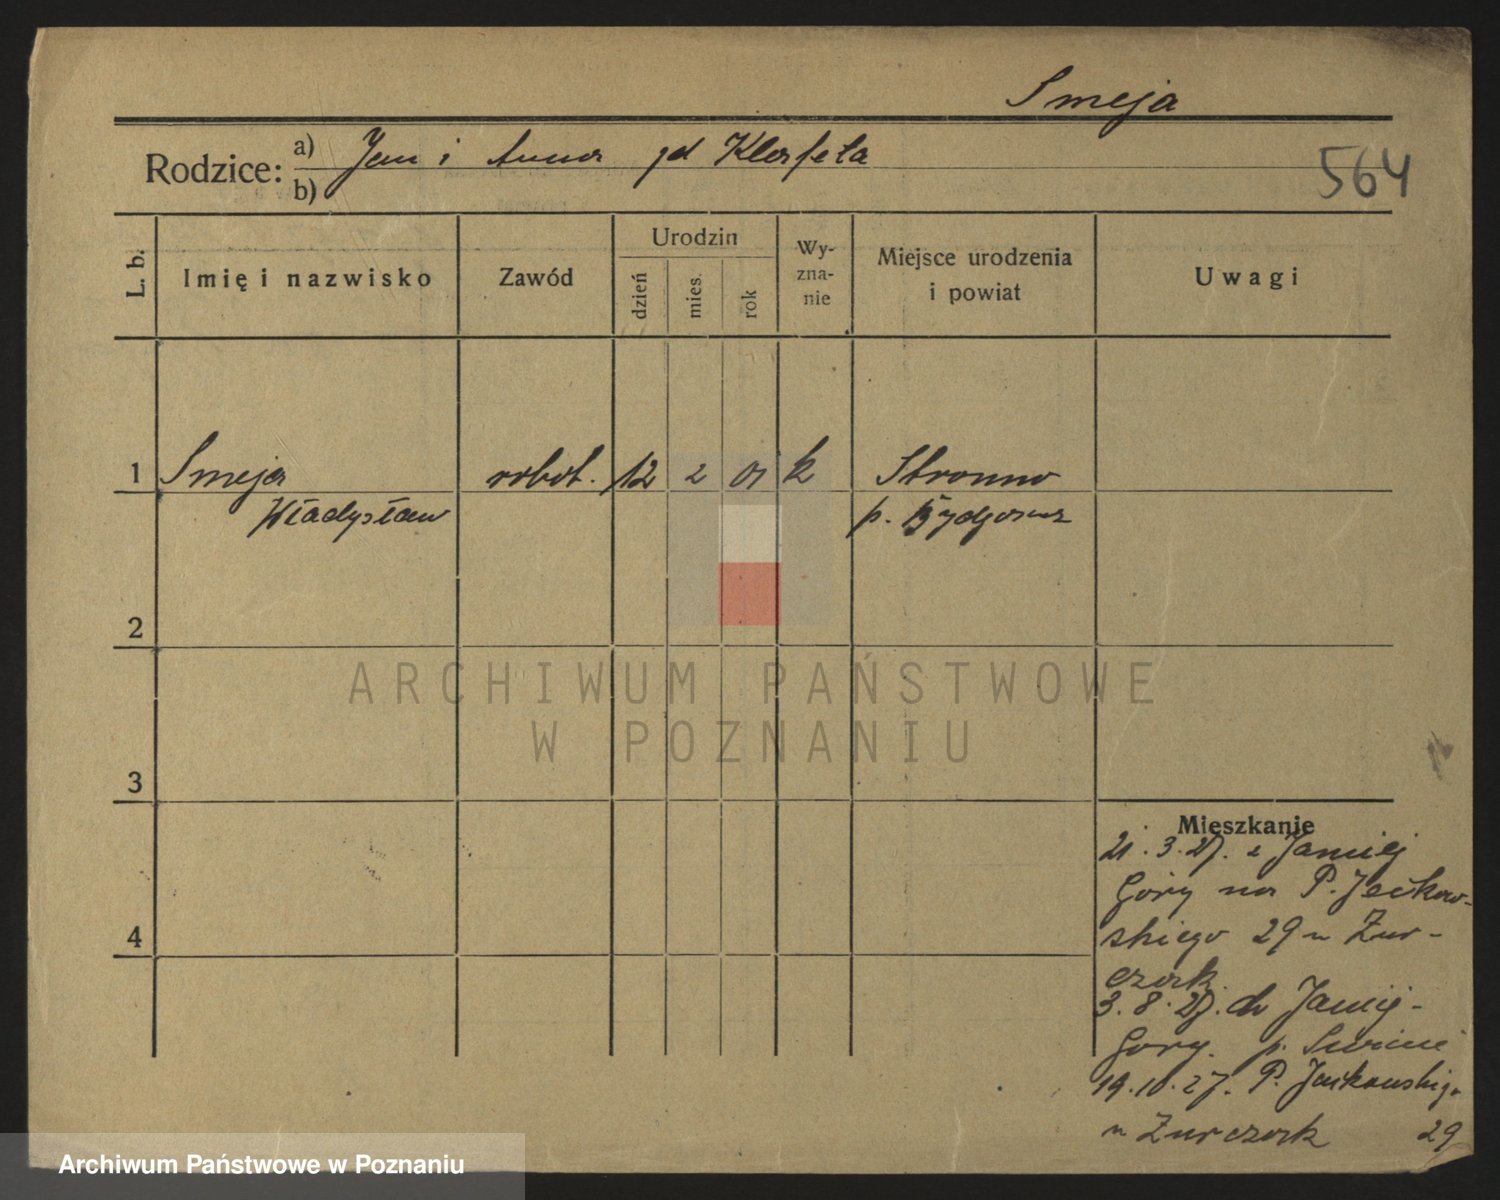 Smeja
Rodzice: a) Jan i Anna zd Klafeta
b)
564
L. b. Imię i nazwisko Zawód Urodzin dzień mies. rok Wy-zna-nie Miejsce urodzenia i powiat Uwagi
1 Smeja robot. 12 2 01 k Stronno
Władysław p. Bydgoszcz
2
3
4
Mieszkanie
21.3.27. z Janiej
Góry na P. Jackow-
skiego 29 u Żur-
czak
3.8.27. do Janiej-
Góry. p. Świecie
19.10.27. P. Jackowskig.
u Żurczak 29
ARCHIWUM PAŃSTWOWE
W POZNANIU
Archiwum Państwowe w Poznaniu